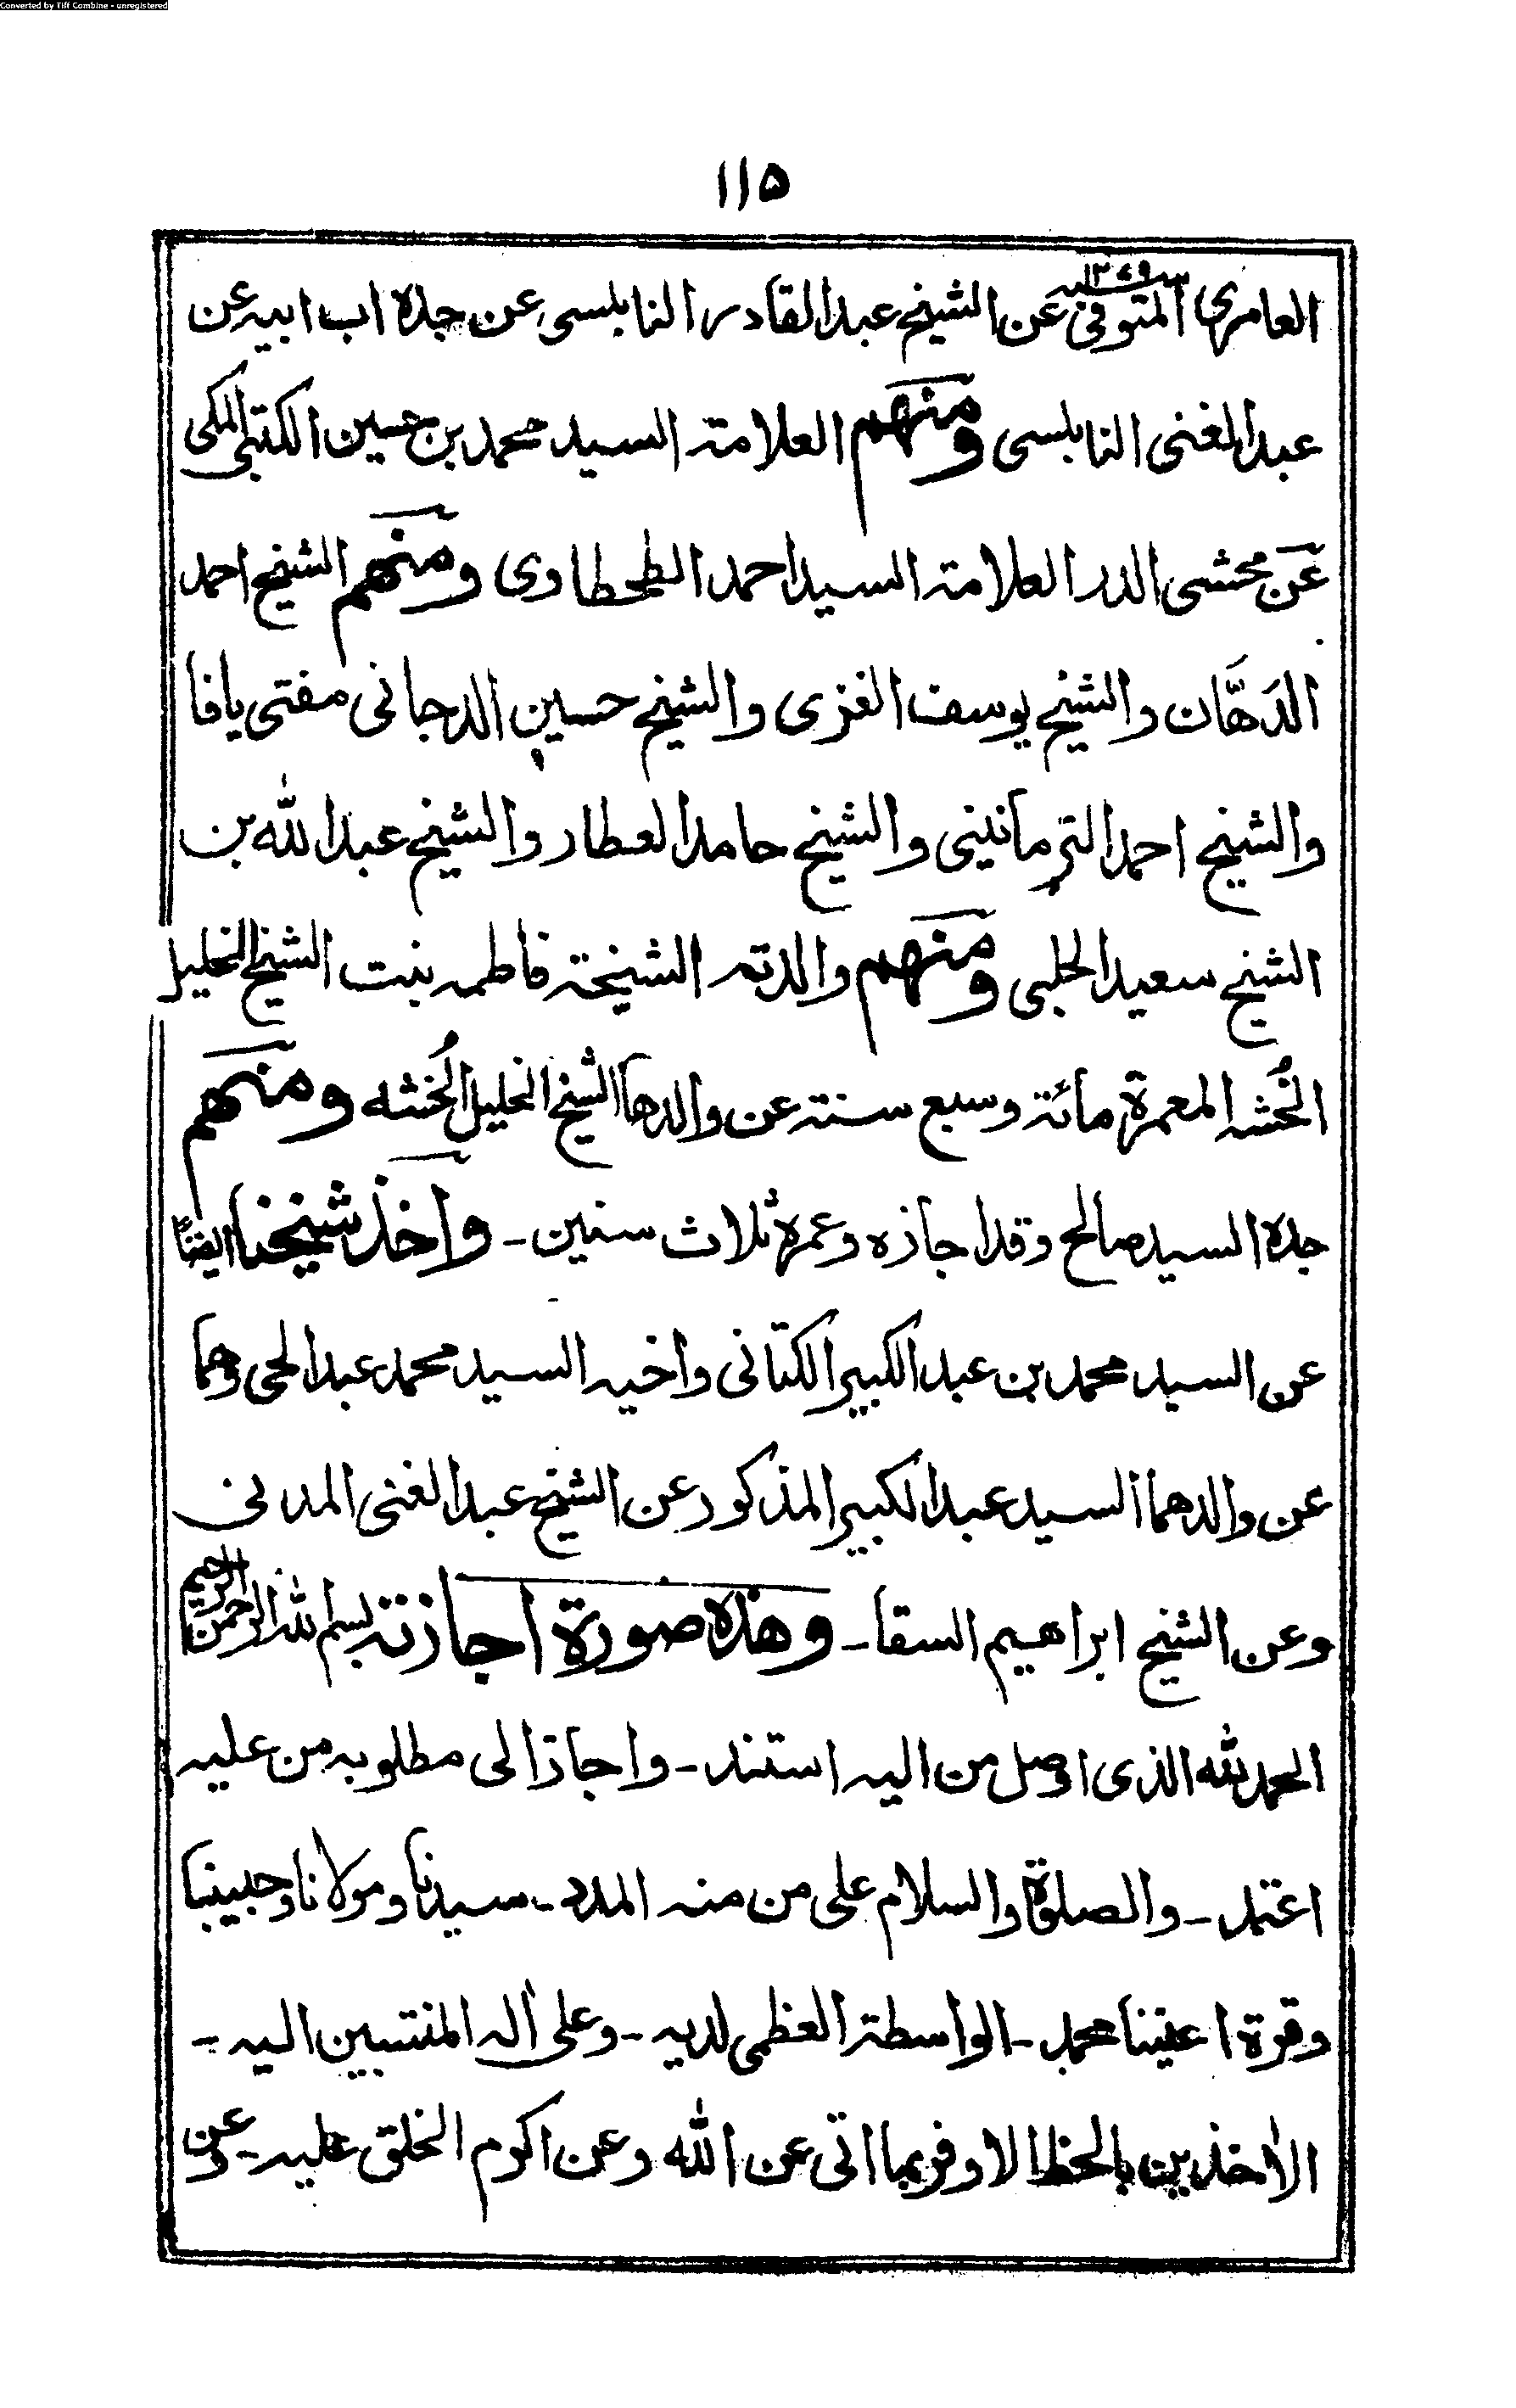 Converted by Tiff Combine - unregistered
۱۱۵
العامری المتوفی سنه عن الشیخ عبدالقادر النابلسی عن جدہ اب ابیہ عن
عبدالغنی النابلسی ومنھم العلامۃ السید محمد بن حسین الکتبی المکی
عن محشی الدر العلامۃ السید احمد الطحطاوی ومنھم الشیخ احمد
الدَھَّان والشیخ یوسف الغزی والشیخ حسین الدجانی مفتی یافا
والشیخ احمد الترمانینی والشیخ حامد العطار والشیخ عبد اللّٰہ بن
الشیخ سعید الحلبی ومنھم والدتہ الشیخۃ فاطمہ بنت الشیخ الخلیل
الخُشہ المعمرۃ مائۃ وسبع سنۃ عن والدھا الشیخ الخلیل الخُشہ ومنھم
جدہ السید صالح وقد اجازہ وعمرہ ثلاث سنین - واخذ شیخنا ایضًا
عن السید محمد بن عبد الکبیر الکتانی واخیہ السید محمد عبد الحی وھما
عن والدھما السید عبد الکبیر المذکور عن الشیخ عبد الغنی المدنی
وعن الشیخ ابراھیم السقا - وھذہ صورۃ اجازتہ بسم اللہ الرحمن الرحیم
الحمد للّٰہ الذی اوصل من الیہ استند - واجاز الی مطلوبہ من علیہ
اعتمد - والصلوۃ والسلام علی من منہ المدد - سیدنا ومولانا وحبیبنا
وقرۃ اعیننا محمد - الواسطۃ العظمی لدیہ - وعلی اٰلہ المنتسبین الیہ -
الاٰخذین بالحظ الاوفر بما اتی عن اللّٰہ وعن اکرم الخلق علیہ - وعن